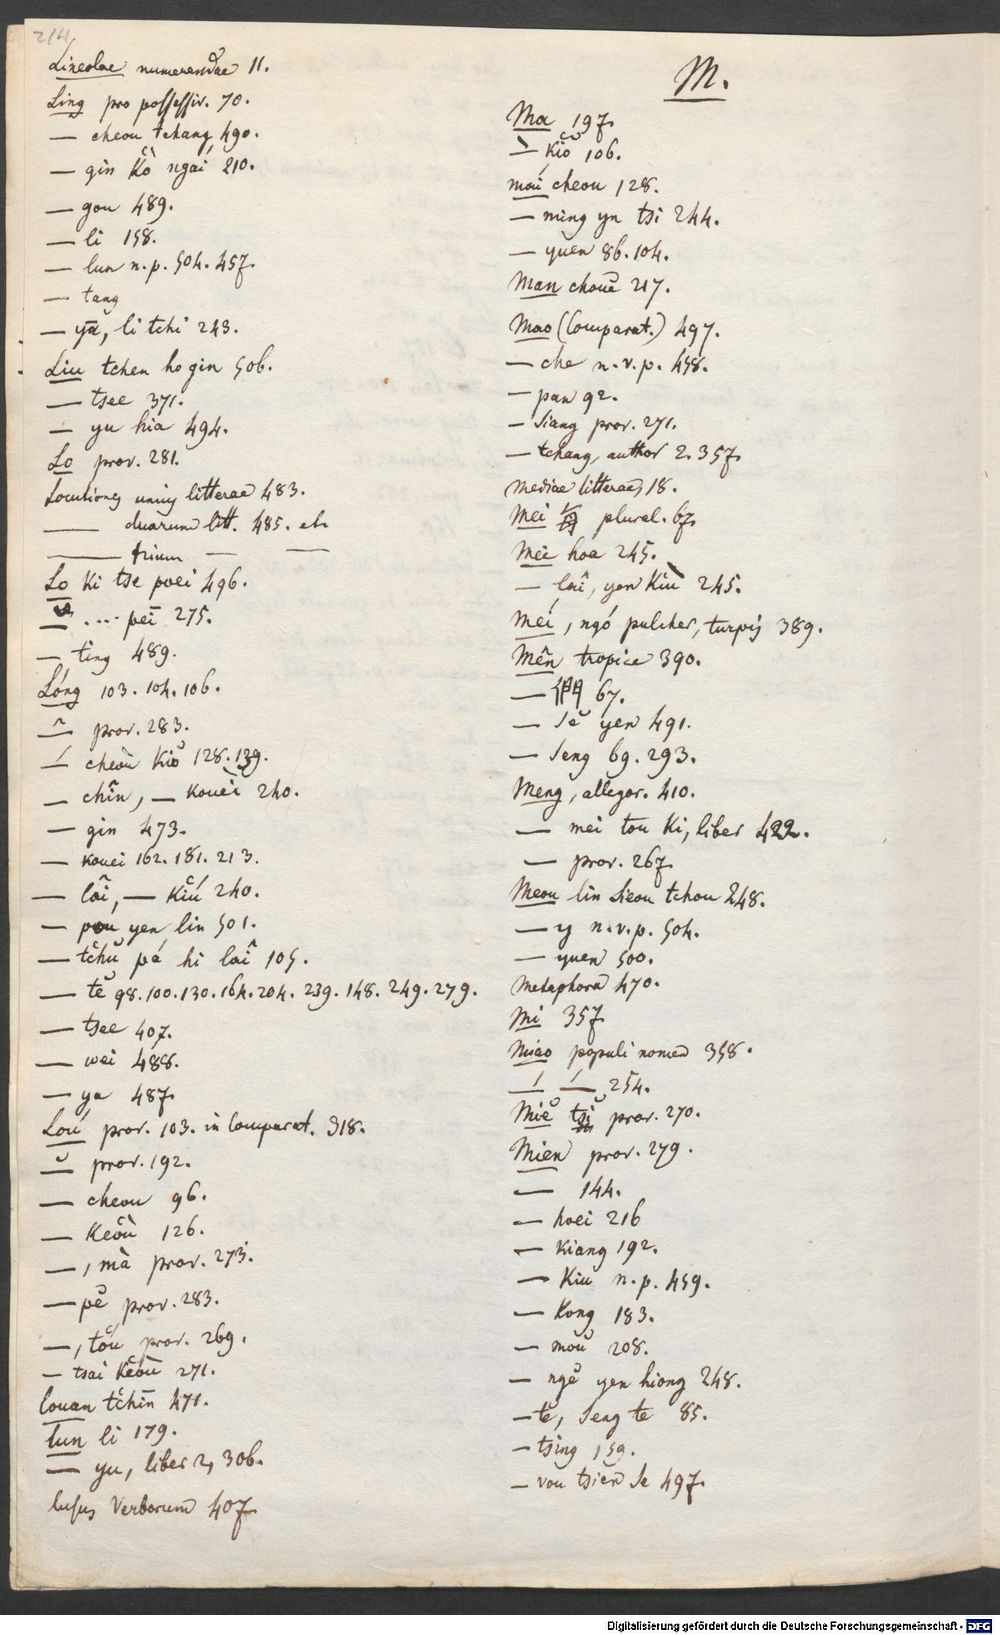 214
Lineolae numerandae 11.
Ling pro possessiv. 70.
— cheou tchang 490.
— gin Kǒ̀ ngai 210.
— gou 489.
— li 158.
— lun n.p. 504. 457.
— tang
— yā, li tchi 243.
Liu tchen ho gin 506.
— tsee 371.
— yu hia 494.
Lo prov. 281.
Locutiones unius litterae 483.
— duarum litt. 485. et
— trium — —
Lo Ki tse poei 496.
— .... pēi 275.
— ting 489.
Lóng 103. 104. 106.
^ prov. 283.
— cheoù Kiǒ 128. 139.
— chîn, — Koueì 240.
— gin 473.
— Kouei 162. 181. 213.
— laî, — Kiú 240.
— pou yen lin 501.
— tchǔ pá hi laî 105.
— tě 98. 100. 130. 164. 204. 239. 148. 249. 279.
— tsee 407.
— wei 488.
— ya 487.
Loú prov. 103. in comparat. 318.
— prov. 192.
— cheou 96.
— Keoù 126.
—, mà prov. 273.
— pě prov. 283.
—, tóu prov. 269.
— tsai Keòu 271.
louan tchīn 471.
Lun li 179.
— yu, liber 2, 306.
lusus Verborum 407.
M.
Ma 197.
— Kiǒ 106.
maí cheou 128.
— ming yn tsi 244.
— yuen 86. 104.
Man chouě 217.
Mao (Comparat.) 497.
— che n.v.p. 458.
— pan 92.
— siang prov. 271.
— tchang, author 2. 357.
Mediae litterae, 18.
Mei 每 plural. 67.
Mei hoa 245.
— laî, yen Kiù 245.
Meí, ngó pulcher, turpis 389.
Mên tropice 390.
— 們 67.
— sě yen 491.
— seng 69. 293.
Meng, allegor. 410.
— mei tou Ki, liber 422.
— prov. 267.
Meou lin sieou tchou 248.
— y n.v.p. 504.
— yuen 500.
Metaphora 470.
Mi 357.
Miao populi nomen 358.
— — 254.
Miě tsǐ prov. 270.
Mien prov. 279.
— 144.
— hoei 216
— Kiang 192.
— Kiu n.p. 459.
— Kong 183.
— moǔ 208.
— ngě yen hiong 248.
— te, seng te 85.
— tsing 159.
— vou tsien se 497.
Digitalisierung gefördert durch die Deutsche Forschungsgemeinschaft - DFG